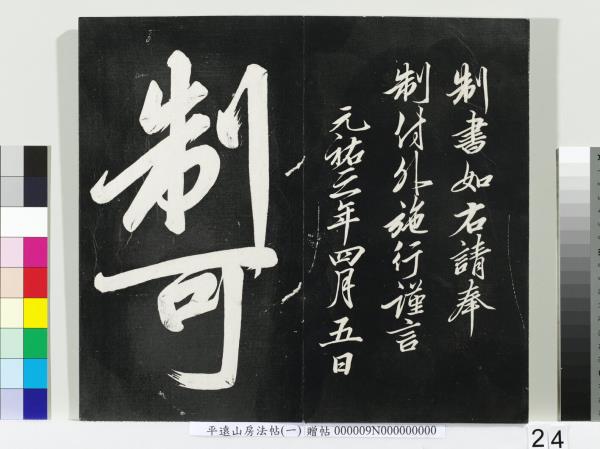 制書如右請奉
制付外施行謹言
元祐三年四月五日
制可
平遠山房法帖(一) 贈帖 000009N000000000
24